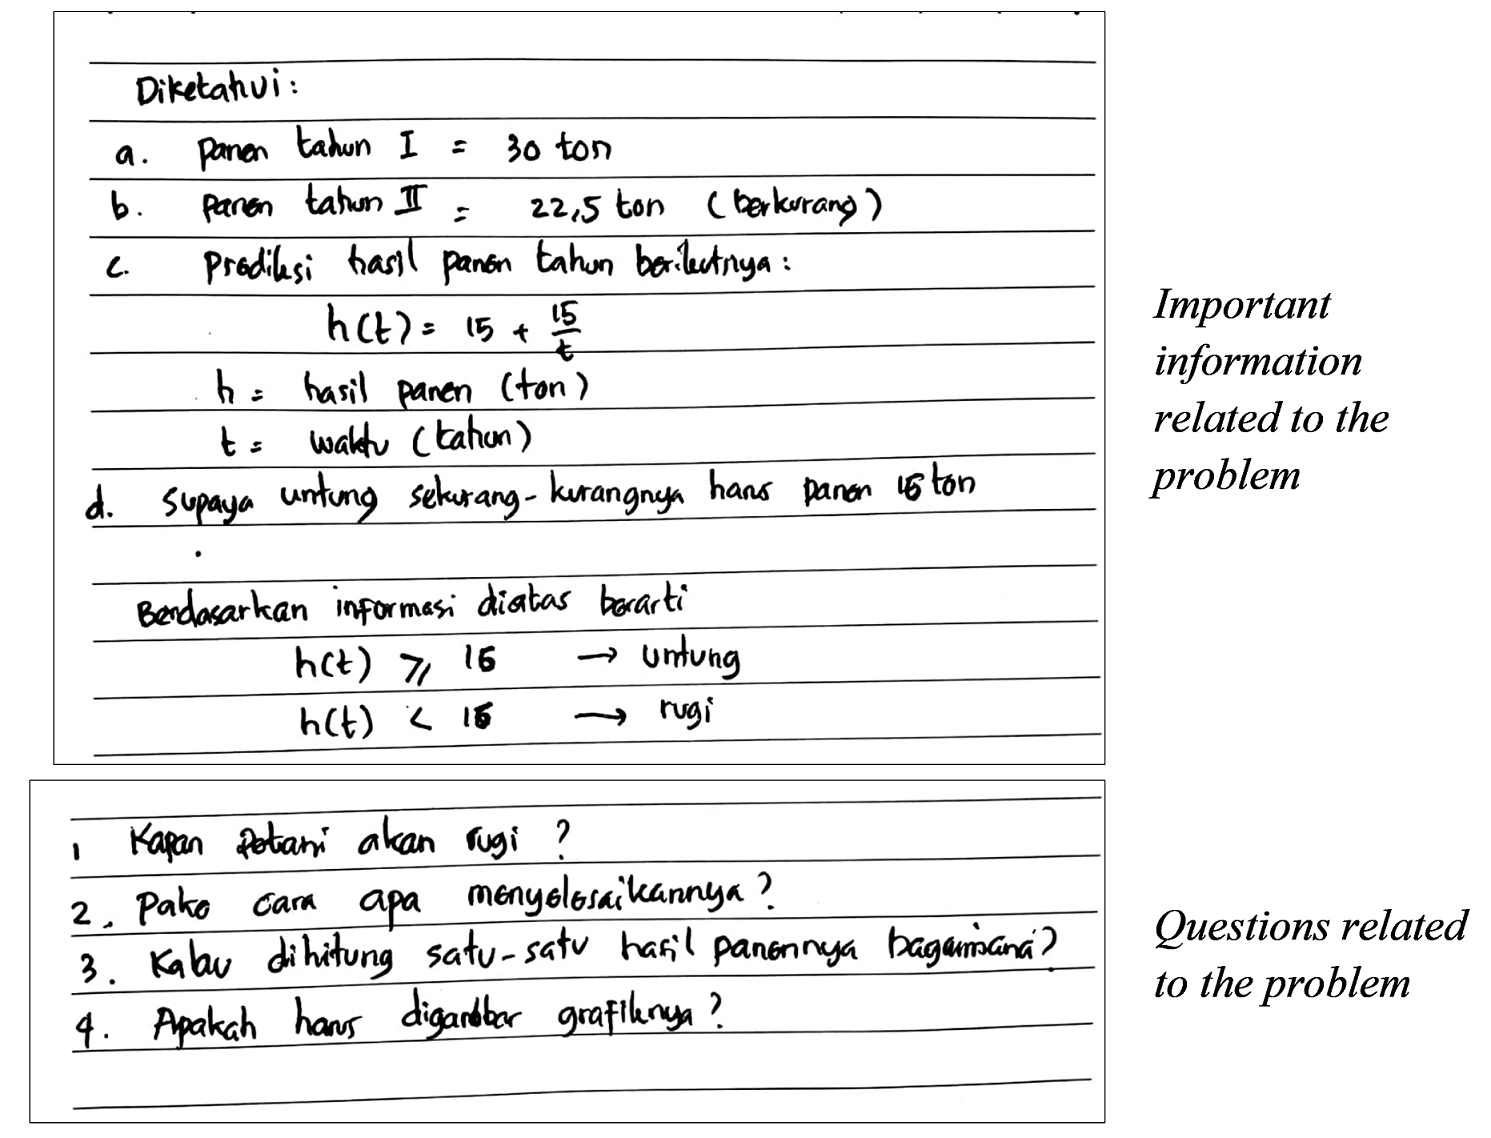 Diketahui:
a. panen tahun I = 30 ton
b. panen tahun II = 22,5 ton (berkurang)
c. Prediksi hasil panen tahun berikutnya:
h(t) = 15 + 15/t
h = hasil panen (ton)
t = waktu (tahun)
d. Supaya untung sekurang-kurangnya harus panen 16 ton
Berdasarkan informasi diatas berarti
h(t) ⩾ 16 → untung
h(t) < 16 → rugi
Important
information
related to the
problem
1 Kapan Petani akan rugi?
2. Pake cara apa menyelesaikannya?
3. Kalau dihitung satu-satu hasil panennya bagaimana?
4. Apakah harus digambar grafiknya?
Questions related
to the problem